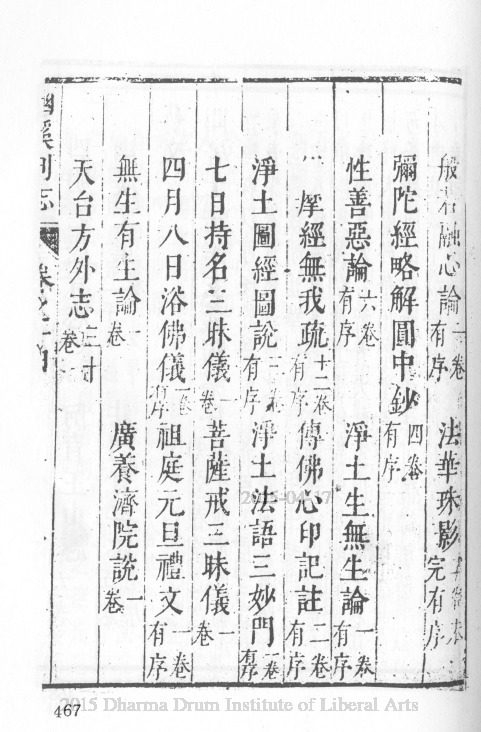 般若融心論一卷有序 法華珠影 卷未完有序
彌陀經略解圓中鈔四卷有序
性善惡論六卷有序 淨土生無生論一卷有序
摩經無我疏十二卷有序 傳佛心印記註二卷有序
淨土圖經圖說一卷有序 淨土法語三妙門一卷有序
七日持名三昧儀一卷 菩薩戒三昧儀一卷
四月八日浴佛儀一卷有序 祖庭元旦禮文一卷有序
無生有生論一卷 廣養濟院說一卷
天台方外志 卷
幽溪別志 卷之
2015-04-17
467
2015 Dharma Drum Institute of Liberal Arts